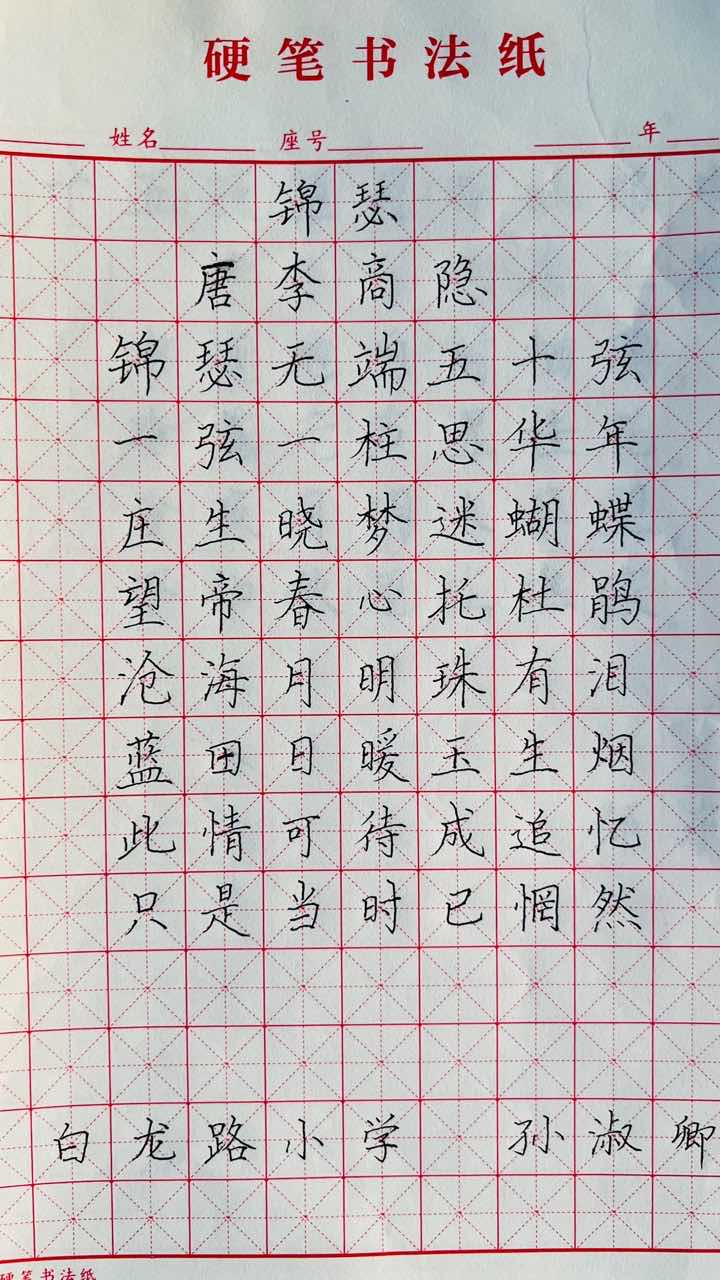 硬笔书法纸
姓名 座号 年
锦瑟
唐李商隐
锦瑟无端五十弦
一弦一柱思华年
庄生晓梦迷蝴蝶
望帝春心托杜鹃
沧海月明珠有泪
蓝田日暖玉生烟
此情可待成追忆
只是当时已惘然
白龙路小学 孙淑卿
硬笔书法纸